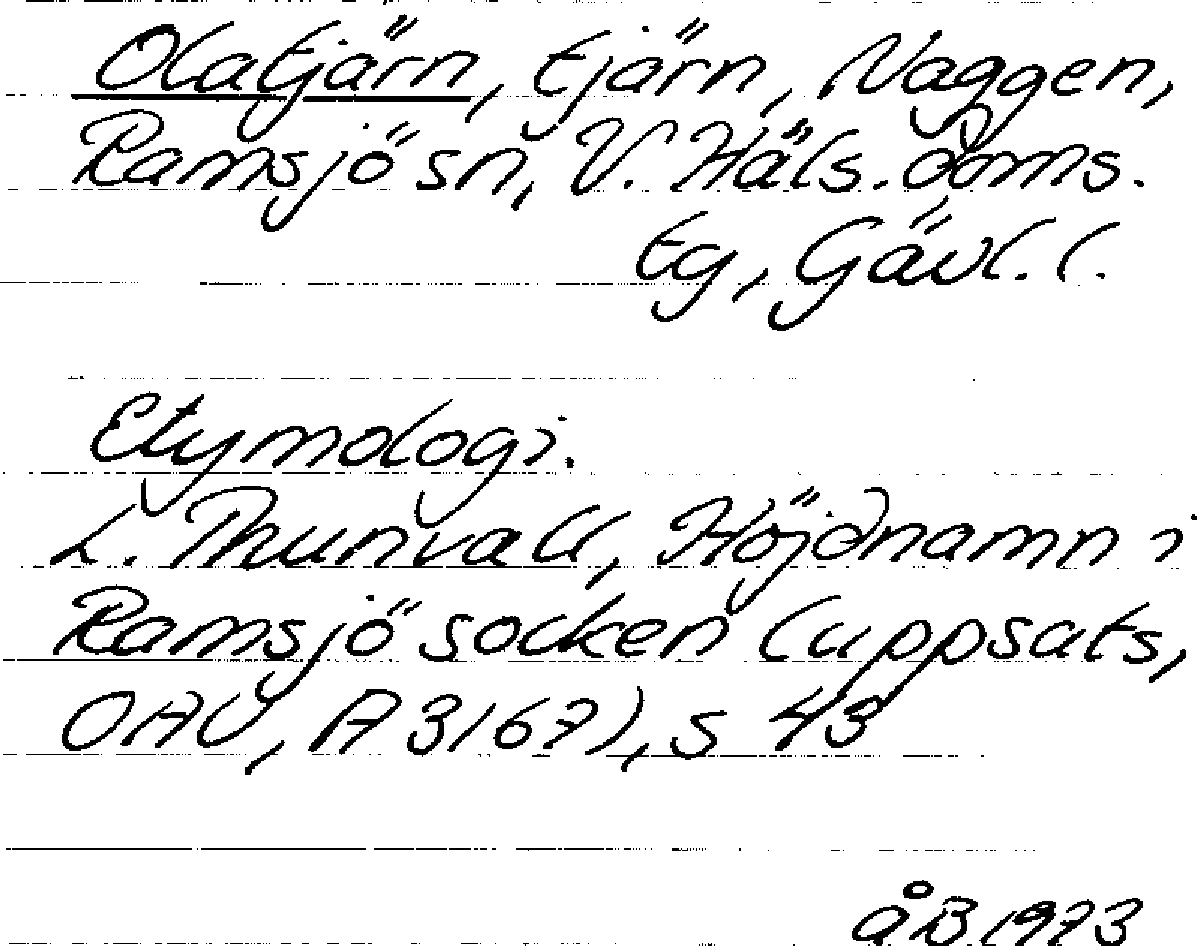 Olatjärn, tjärn, Naggen,
Ramsjö sn, V. Häls. doms.
tg, Gävl. l.
Etymologi.
L. Thunvall, Höjdnamn i
Ramsjö socken (uppsats,
OAU, A 3167), s 43
åB 1973